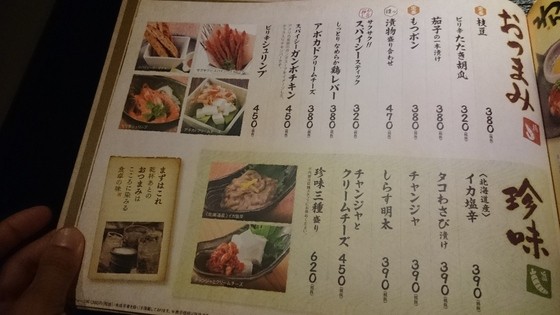 おつまみ
枝豆
380
ピリ辛たたき胡瓜
320
茄子の一本漬け
380
もつポン
380
漬物盛り合わせ
470
サクサク!!
スパイシースティック
320
しっとりなめらか鶏レバー
380
アボカドクリームチーズ
380
スパイシーガンボチキン
450
ピリ辛シュリンプ
450
珍味
〈北海道産〉
イカ塩辛
390
タコわさび漬け
390
チャンジャ
390
しらす明太
390
チャンジャと
クリームチーズ
450
珍味三種盛り
620
まずはこれ
乾杯あとの
おつまみは
こころに染みる
食卓の味